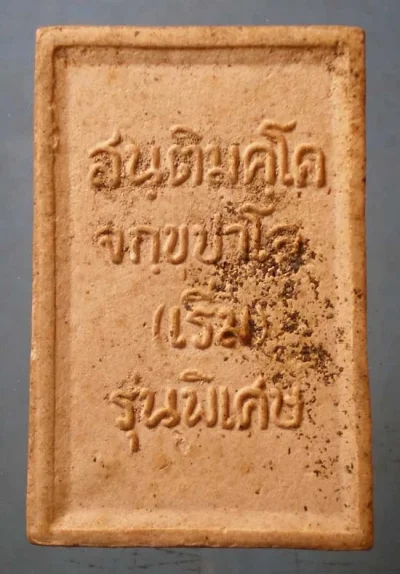 สนฺติมคฺโค
จกฺขุปาโล
(เริ่ม)
รุ่นพิเศษ